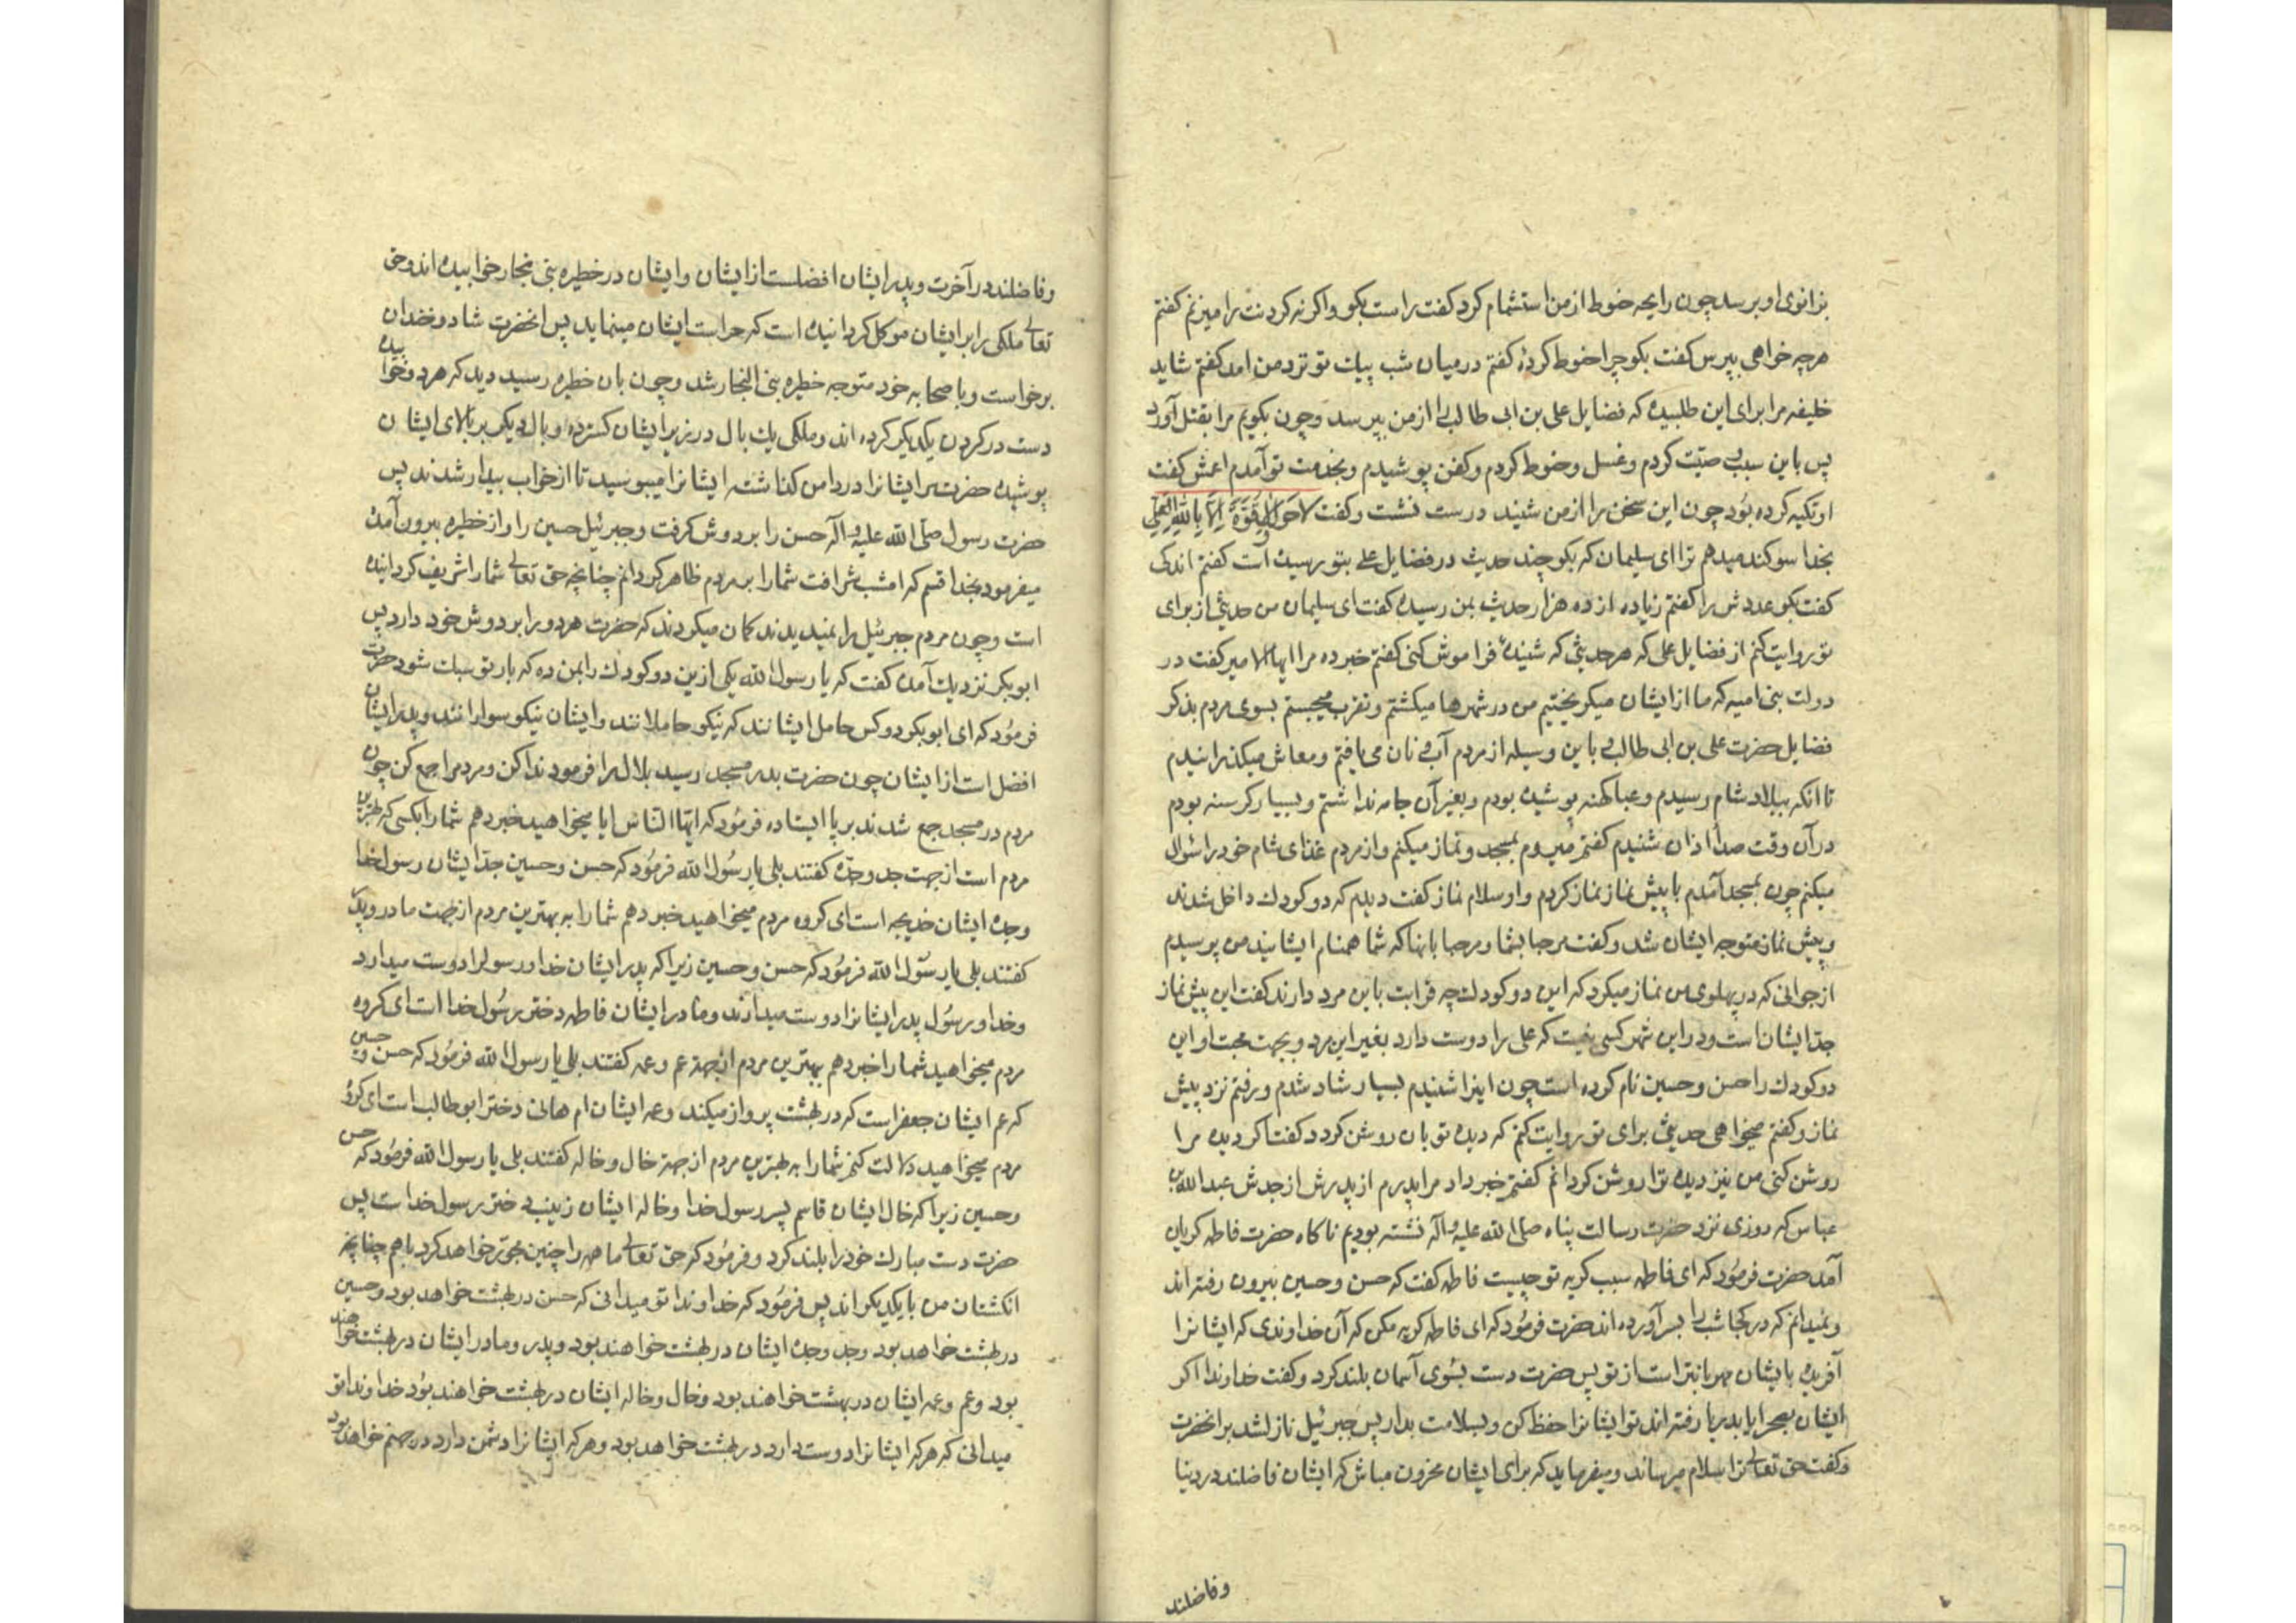 بزانوی او برسد چون رایحه حنوط از من استشمام کرد کفت راست بکو و اکرنه کردنت را میزنم کفتم
هرچه خواهی بپرس کفت بکو چرا حنوط کردهٔ کفتم در میان شب پیك تو نزد من امد کفتم شاید
خلیفه مرا برای این طلبیده که فضایل علی بن ابی طالب را از من بپرسد و چون بکویم مرا بقتل آورد
پس باین سبب وصیّت کردم و غسل و حنوط کردم و کفن پوشیدم و بخدمت تو آمدم اعمش کفت
او تکیه کرده بود چون این سخن را از من شنید درست نشست و کفت لا حول ولا قُوّةَ اِلّا بِاللهِ العَلیّ
بخدا سوکند میدهم ترا ای سلیمان که بکو چند حدیث در فضایل علی بتو رسیده است کفتم اندکی
کفت بکو عددش را کفتم زیاده از ده هزار حدیث بمن رسیده کفت ای سلیمان من حدیثی از برای
تو روایت کنم از فضایل علی که هر حدیثی که شنیدهٔ فراموش کنی کفتم خبر ده مرا ایها الامیر کفت در
دولت بنی امیه که ما از ایشان میکریختیم من در شهرها میکشتم و تقرب میجستم بسوی مردم بذکر
فضایل حضرت علی بن ابی طالب و باین وسیله از مردم آب و نان می یافتم و معاش میکذرانیدم
تا انکه ببلاد شام رسیدم و عبا کهنه پوشیده بودم و بغیر آن جامه نداشتم و بسیار کرسنه بودم
در آن وقت صدا اذان شنیدم کفتم میروم بمسجد و نماز میکنم و از مردم غذای شام خود را سؤال
میکنم چون بمسجد آمدم با پیش نماز نماز کردم و او سلام نماز کفت دیدم که دو کودك داخل شدند
و پیش نماز متوجه ایشان شد و کفت مرحبا بشما و مرحبا بانها که شما همنام ایشانید من پرسیدم
از جوانی که در پهلوی من نماز میکرد که این دو کودك چه قرابت باین مرد دارند کفت این پیش نماز
جدّ ایشان است و در این شهر کسی نیست که علی را دوست دارد بغیر این مرد و بجهت محبت او این
دو کودك را حسن و حسین نام کرده است چون اینرا شنیدم بسیار شاد شدم و رفتم نزد پیش
نماز و کفتم میخواهی حدیثی برای تو روایت کنم که دیده تو بان روشن کردد کفت اکر دیده مرا
روشن کنی من نیز دیده ترا روشن کردانم کفتم خبر داد مرا پدرم از پدرش از جدش عبدالله بن
عباس که روزی نزد حضرت رسالت پناه صلی الله علیه وآله نشسته بودیم ناکاه حضرت فاطمه کریان
آمد حضرت فرمود که ای فاطمه سبب کریه تو چیست فاطمه کفت که حسن و حسین بیرون رفته اند
و نمیدانم که در کجا شب را بسر آورده اند حضرت فرمود که ای فاطمه کریه مکن که آن خداوندی که ایشانرا
آفریده بایشان مهربانتر است از تو پس حضرت دست بسوی آسمان بلند کرد و کفت خداوندا اکر
ایشان بصحرا یا بدریا رفته اند تو ایشانرا حفظ کن و بسلامت بدار پس جبرئیل نازل شد بر انحضرت
و کفت حق تعالی ترا سلام میرساند و میفرماید که برای ایشان محزون مباش که ایشان فاضلند در دنیا
وفاضلند
وفاضلند در آخرت و پدر ایشان افضلست از ایشان و ایشان در خطیره بنی نجار خوابیده اند و حق
تعالی ملکی را بر ایشان موکل کردانیده است که حراست ایشان مینماید پس انحضرت شاد و خندان
برخواست و با صحابه خود متوجه خطیره بنی النجار شد و چون بان خطیره رسید دید که هر دو خوابیده
دست در کردن یکدیکر کرده اند و ملکی یك بال در زیر ایشان کسترده و بال دیکر بر بالای ایشان
پوشیده حضرت ایشانرا در دامن کذاشته ایشانرا میبوسید تا از خواب بیدار شدند پس
حضرت رسول صلی الله علیه وآله حسن را بر دوش کرفت و جبرئیل حسین را و از خطیره بیرون آمده
میفرمود بخدا قسم که امشب شرافت شما را بر مردم ظاهر کردانم چنانچه حق تعالی شما را شریف کردانیده
است و چون مردم جبرئیل را نمیدیدند کمان میکردند که حضرت هر دو را بر دوش خود دارد پس
ابوبکر نزدیك آمده کفت که یا رسول الله یکی ازین دو کودك را بمن ده که بار تو سبك شود حضرت
فرمود که ای ابوبکر دو کس حامل ایشانند که نیکو حاملانند و ایشان نیکو سوارانند و پدر ایشان
افضل است از ایشان چون حضرت بدر مسجد رسید بلال را فرمود ندا کن و مردم را جمع کن چون
مردم در مسجد جمع شدند بر پا ایستاده فرمود که ایها النّاس ایا میخواهید خبر دهم شما را بکسی که بهترین
مردم است از جهت جد و جدّه کفتند بلی یا رسول الله فرمود که حسن و حسین جدّ ایشان رسول خدا
و جده ایشان خدیجه است ای کروه مردم میخواهید خبر دهم شما را به بهترین مردم از جهت مادر و پدر
کفتند بلی یا رسول الله فرمود که حسن و حسین زیرا که پدر ایشان خدا و رسول را دوست میدارد
و خدا و رسول پدر ایشانرا دوست میدارند و مادر ایشان فاطمه دختر رسول خدا است ای کروه
مردم میخواهید شما را خبر دهم ببهترین مردم از جهة عم و عمه کفتند بلی یا رسول الله فرمود که حسن و حسین
که عم ایشان جعفر است که در بهشت پرواز میکند و عمه ایشان ام هانی دختر ابوطالب است ای کروه
مردم میخواهید دلالت کنم شما را به بهترین مردم از جهة خال و خاله کفتند بلی یا رسول الله فرمود که حسن
و حسین زیرا که خال ایشان قاسم پسر رسول خدا و خاله ایشان زینب دختر رسول خدا است پس
حضرت دست مبارك خود را بلند کرد و فرمود که حق تعالی ما همه را چنین محشور خواهد کرد با هم چنانچه
انکشتان من با یکدیکر اند پس فرمود که خداوندا تو میدانی که حسن در بهشت خواهد بود و حسین
در بهشت خواهد بود و جد و جده ایشان در بهشت خواهند بود و پدر و مادر ایشان در بهشت خواهند
بود و عم و عمه ایشان در بهشت خواهند بود و خال و خاله ایشان در بهشت خواهند بود خداوندا تو
میدانی که هر که ایشانرا دوست دارد در بهشت خواهد بود و هر که ایشانرا دشمن دارد در جهنم خواهد بود